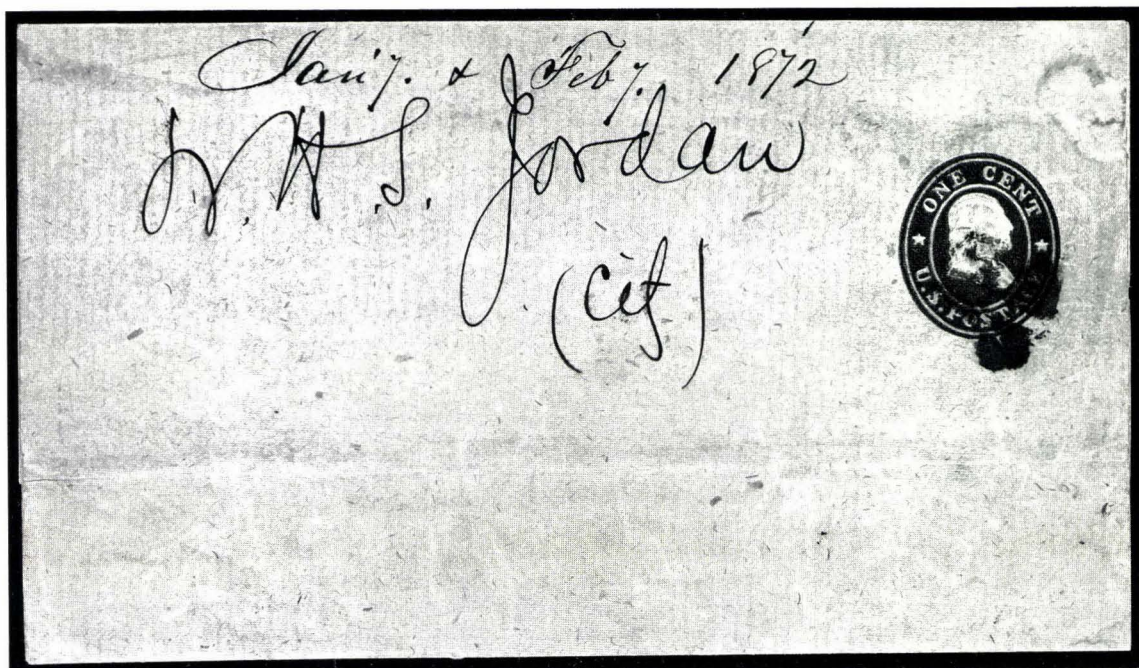 Jany. & Feby. 1872
W. H. S. Jordan
(City)
ONE CENT
U.S. POSTAGE